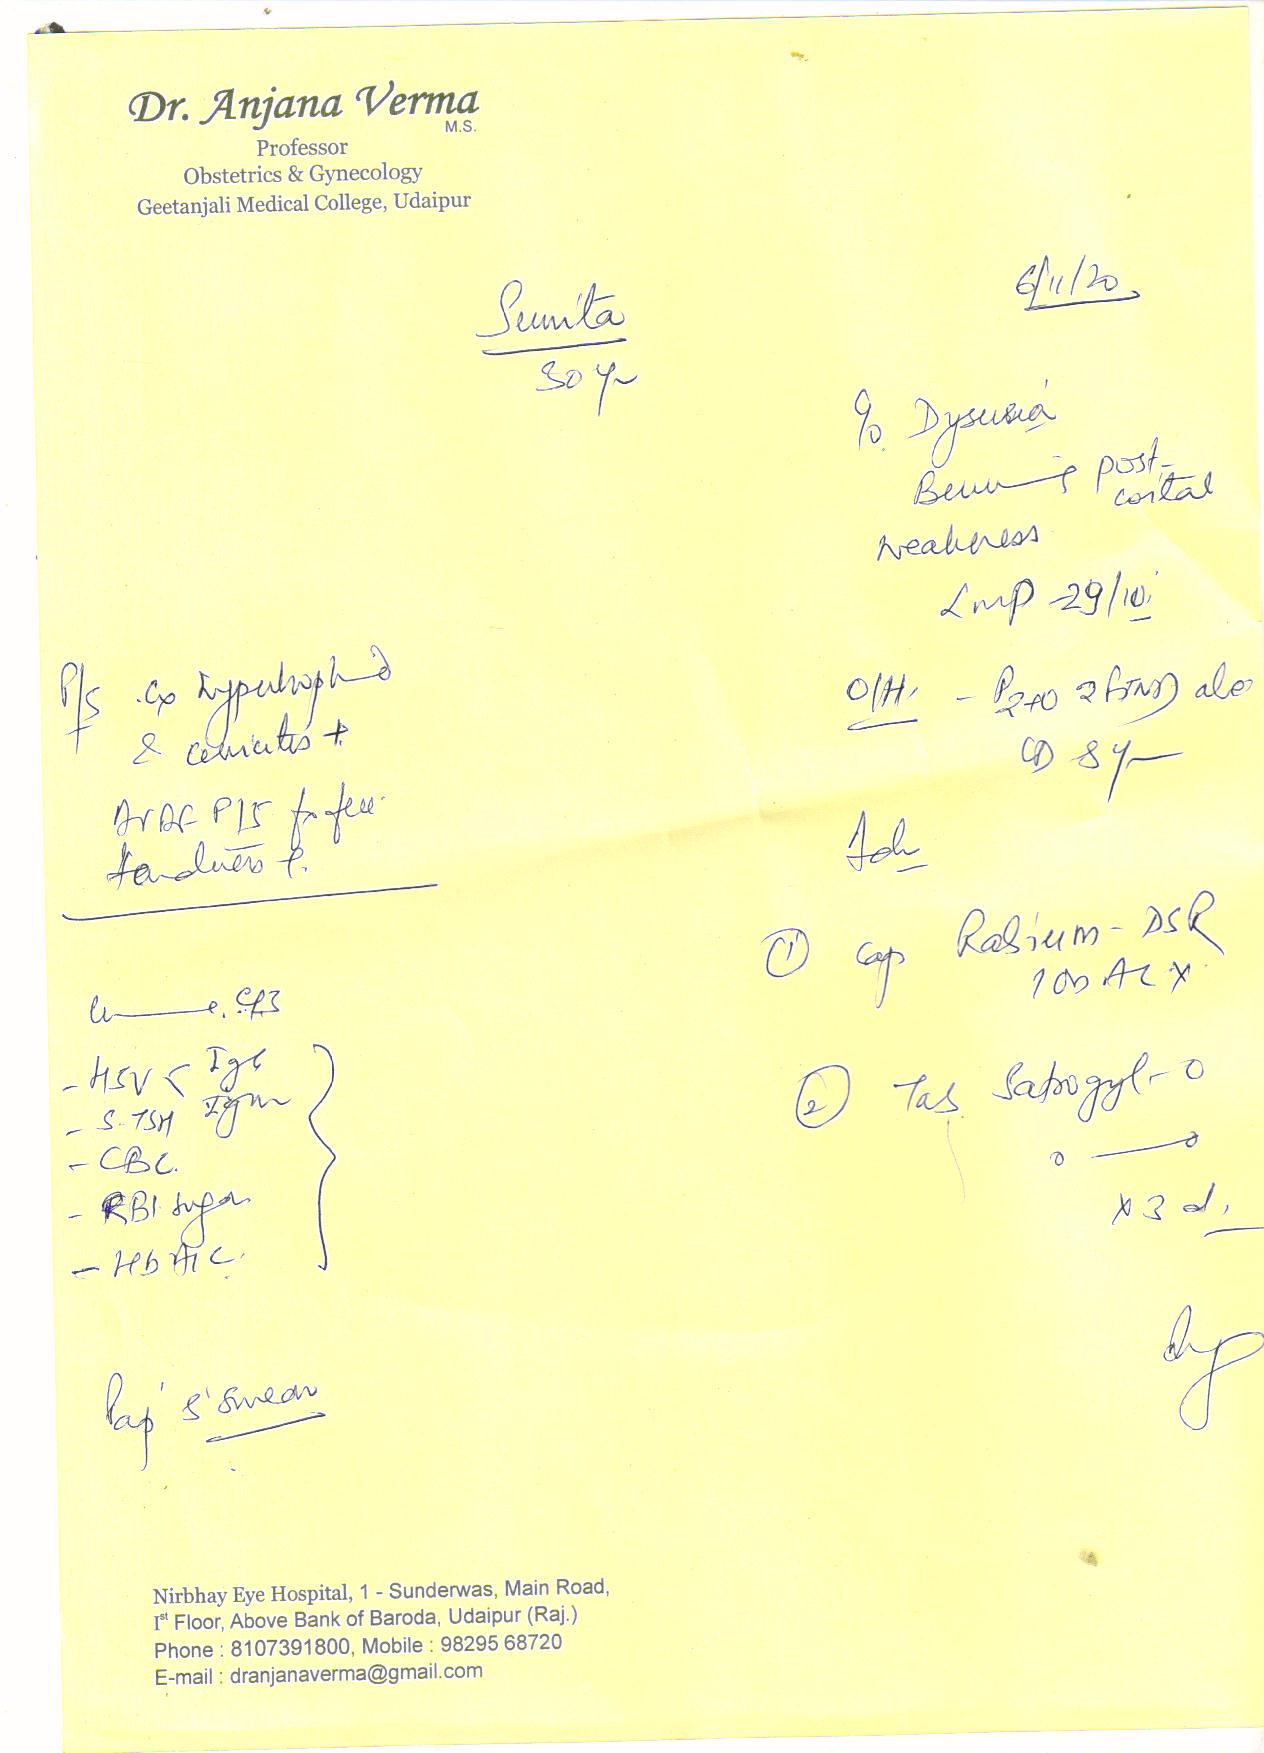 Dr. Anjana Verma
M.S.
Professor
Obstetrics & Gynecology
Geetanjali Medical College, Udaipur
6/11/20
Sunita
30 yr
c/o Dysuria
post-
coital
weakness
LMP - 29/10
O/H. - P2+0 2 FTND
8 yr
P/S Cx hypertrophied
& cervicitis +
AVAF P/S
tenderness +
Adv
① Cap Rabium - DSR
1 OD AC X
② Tab Satrogyl - O
x 3 d.
- HSV < IgG
IgM
- S. TSH
- CBC.
- RBI sugar
- HbA1C.
Pap's smear
Nirbhay Eye Hospital, 1 - Sunderwas, Main Road,
Ist Floor, Above Bank of Baroda, Udaipur (Raj.)
Phone : 8107391800, Mobile : 98295 68720
E-mail : dranjanaverma@gmail.com